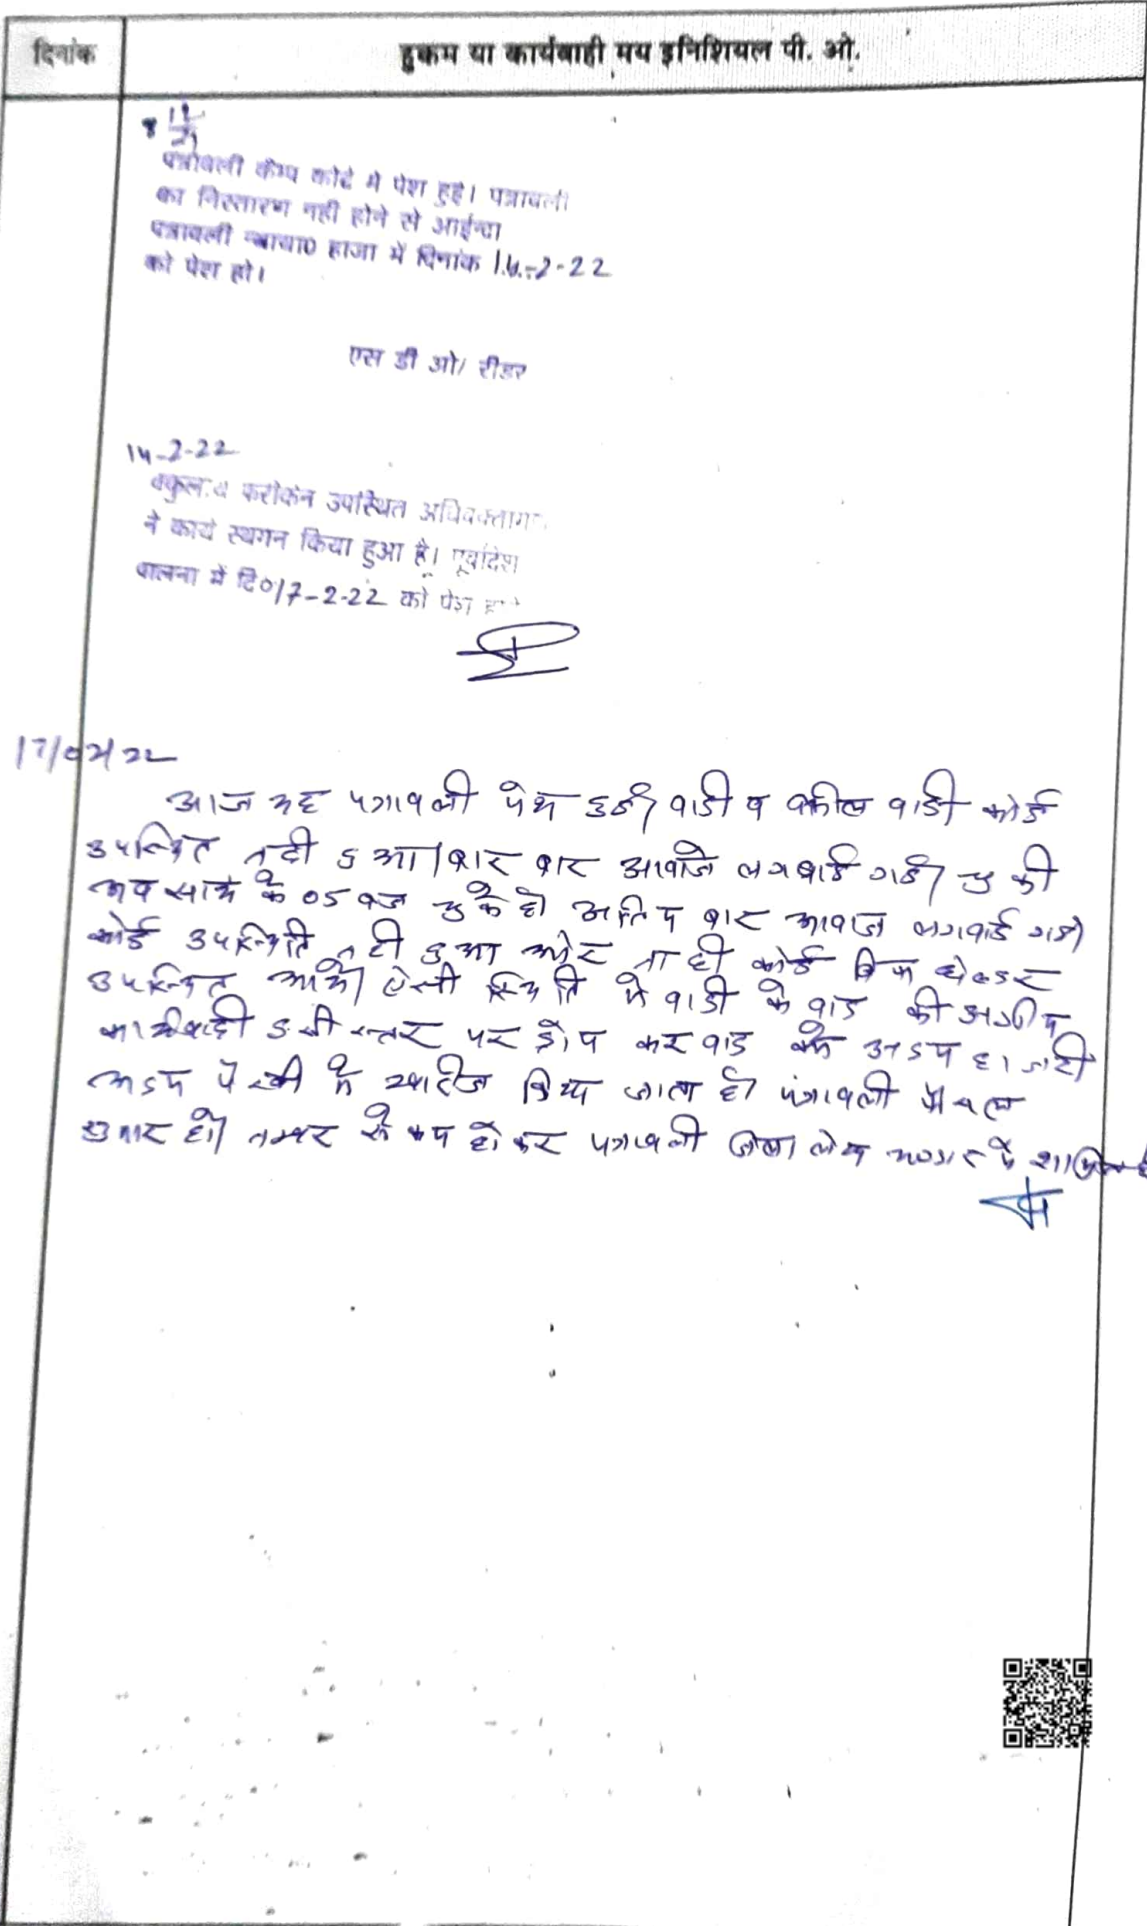 दिनांक
हुकम या कार्यवाही मय इनिशियल पी. ओ.
पत्रावली कैम्प कोर्ट में पेश हुई। पत्रावली
का निस्तारण नही होने से आईन्दा
पत्रावली न्याया० हाजा में दिनांक 14-2-22
को पेश हो।
एस डी ओ/ रीडर
14-2-22
फरीकेन उपस्थित अधिवक्तागण
ने कार्य स्थगन किया हुआ है। पूर्वादेश
पालना में दि०17-2-22 को पेश
17/02/22
आज यह पत्रावली पेश हुई। वादी व वकील वादी कोई
उपस्थित नही हुआ। बार बार आवाजे लगवाई गई। चुकी
अब सायं के 05 बज चुके है। अंतिम बार आवाज लगवाई गई।
कोई उपस्थिति नही हुआ और ना ही कोई
उपस्थित आये। ऐसी स्थिति में वादी के वाद की अग्रीम
कार्यवाही इसी स्तर पर ड्रोप कर वाद को अदम हाजरी
अदम पैरवी में खारीज किया जाता है। पत्रावली फैसल
शुमार हो। नम्बर से कम होकर पत्रावली में